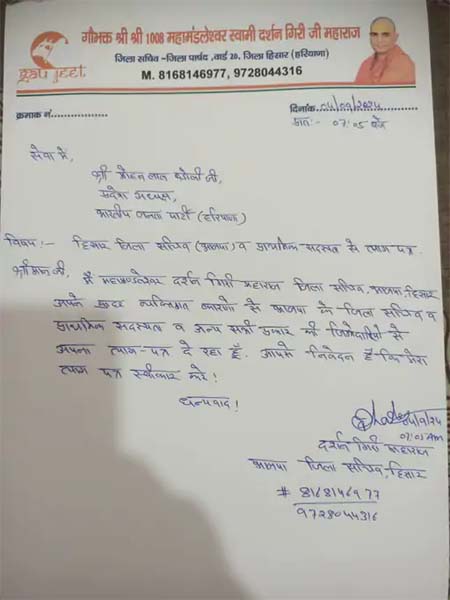 गौभक्त श्री श्री 1008 महामंडलेश्वर स्वामी दर्शन गिरी जी महाराज
जिला सचिव -जिला पार्षद, वार्ड 20, जिला हिसार (हरियाणा)
M. 8168146977, 9728044316
gau jeet
क्रमाक नं..................
दिनांक 05/09/2024
प्रातः- 07:05 बजे
सेवा में,
श्री मोहन लाल बडोली जी,
प्रदेश अध्यक्ष,
भारतीय जनता पार्टी (हरियाणा)
विषय :- हिसार जिला सचिव (भाजपा) व प्राथमिक सदस्यता से त्याग पत्र.
श्रीमान जी, मैं महामण्डलेश्वर दर्शन गिरी महाराज जिला सचिव, भाजपा, हिसार
आपके व्यक्तिगत कारणों से भाजपा के जिला सचिव व
प्राथमिक सदस्यता व अन्य सभी प्रकार की जिम्मेदारियों से
अपना त्याग-पत्र दे रहा हूँ. आपसे निवेदन है कि मेरा
त्याग पत्र स्वीकार करें!
धन्यवाद!
5/9/24
07:05 AM
दर्शन गिरी महाराज
भाजपा जिला सचिव, हिसार
# 8168146977
9728044316